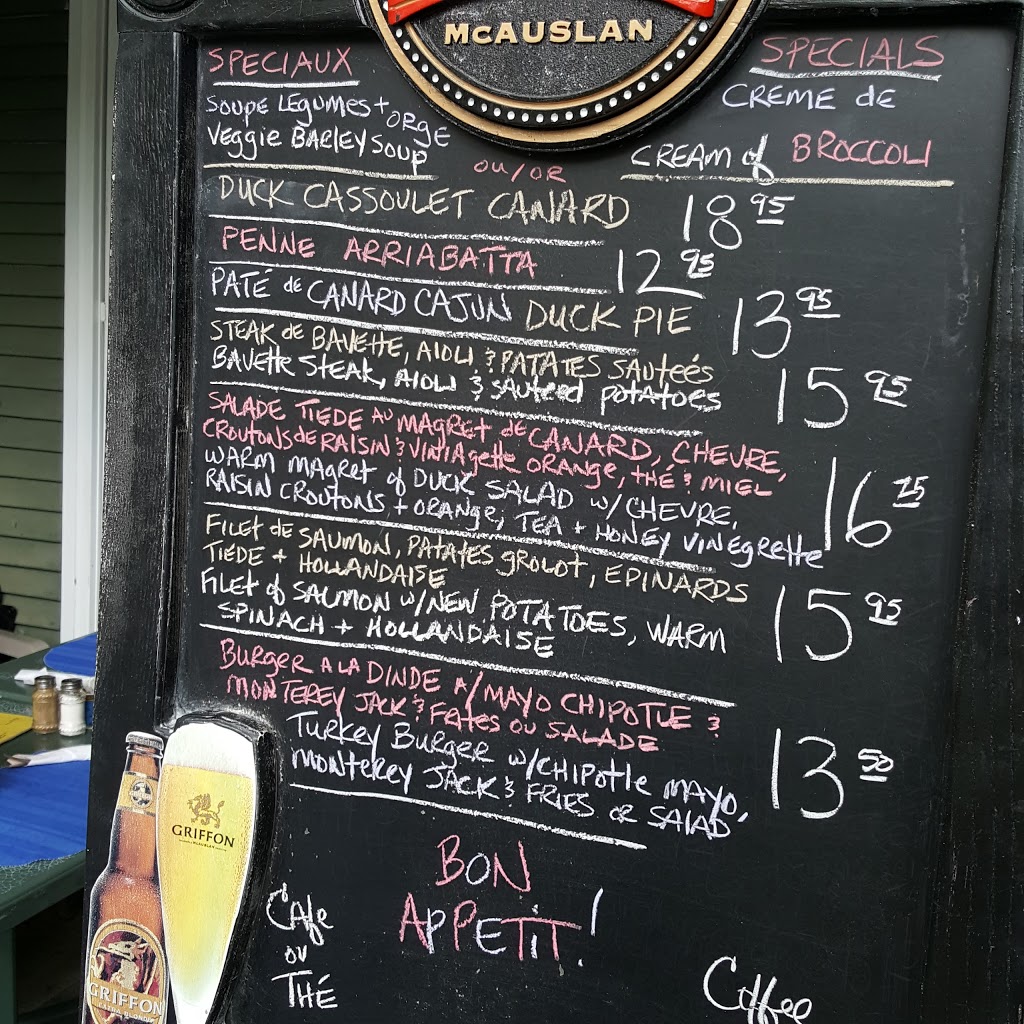 McAUSLAN
SPECIAUX
SPECIALS
SOUPE LÉGUMES + ORGE
Veggie BARLEY SOUP
OU/OR
CREME de
CREAM of BROCCOLI
DUCK CASSOULET CANARD 18 95
PENNE ARRIABATTA 12 95
PATÉ de CANARD CAJUN DUCK PIE 13 95
STEAK de BAVETTE, AIOLI & PATATES SAUTEÉS
BAVETTE STEAK, AIOLI & SAUTEED POTATOES 15 95
SALADE TIEDE AU MAGRET de CANARD, CHEVRE,
CROUTONS DE RAISIN & VINTIAGETTE ORANGE, THÉ & MIEL
WARM MAGRET of DUCK SALAD W/CHEVRE,
RAISIN CROUTONS + ORANGE, TEA + HONEY VINEGRETTE 16 75
FILET de SAUMON, PATATES grolot, EPINARDS
TIEDE + HOLLANDAISE
FILET of SALMON W/NEW POTATOES, WARM
SPINACH + HOLLANDAISE 15 95
BURGER A LA DINDE A/MAYO CHIPOTLE &
MONTEREY JACK & FRITES OU SALADE
TURKEY BURGER W/CHIPOTLE MAYO,
MONTEREY JACK & FRIES OR SALAD 13 50
BON
APPETIT!
CAFE
OU
THÉ
Coffee
GRIFFON
McAUSLAN
GRIFFON
EXTRA BLONDE